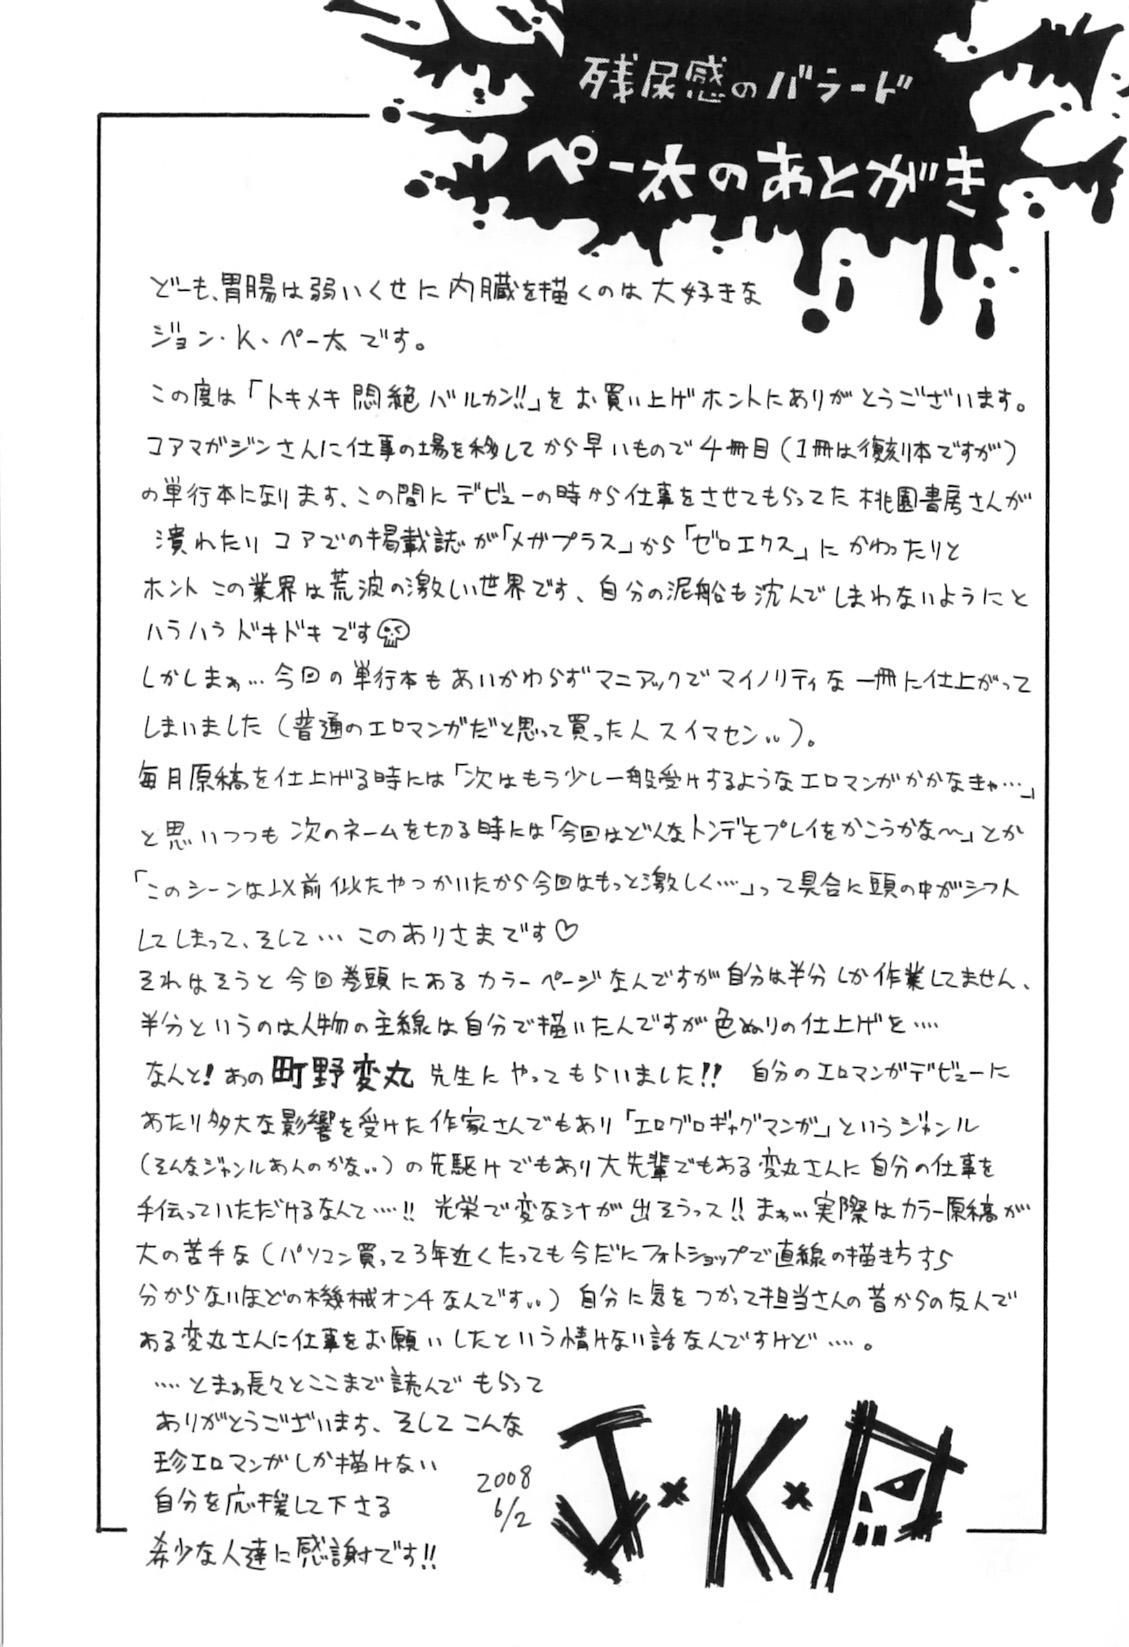 残尿感のバラード
ペー太のあとがき
どーも、胃腸は弱いくせに内臓を描くのは大好きな
ジョン・K・ペー太です。
この度は「トキメキ悶絶バルカン!!」をお買い上げホントにありがとうございます。
コアマガジンさんに仕事の場を移してから早いもので4冊目(1冊は復刻本ですが)
の単行本になります、この間にデビューの時から仕事をさせてもらってた桃園書房さんが
潰れたりコアでの掲載誌が「メガプラス」から「ゼロエクス」にかわったりと
ホントこの業界は荒波の激しい世界です、自分の泥船も沈んでしまわないようにと
ハラハラドキドキです
しかしまぁ…今回の単行本もあいかわらずマニアックでマイノリティな一冊に仕上がって
しまいました(普通のエロマンガだと思って買った人スイマセン‥)。
毎月原稿を仕上げる時には「次はもう少し一般受けするようなエロマンガかかなきゃ…」
と思いつつも次のネームを切る時には「今回はどんなトンデモプレイをかこうかな〜」とか
「このシーンは以前似たやつかいたから今回はもっと激しく…」って具合に頭の中がシフト
してしまって、そして…このありさまです♡
それはそうと今回巻頭にあるカラーページなんですが自分は半分しか作業してません、
半分というのは人物の主線は自分で描いたんですが色ぬりの仕上げを‥‥
なんと!あの町野変丸先生にやってもらいました!! 自分のエロマンガデビューに
あたり多大な影響を受けた作家さんでもあり「エログロギャグマンガ」というジャンル
(そんなジャンルあんのかな‥)の先駆けでもあり大先輩でもある変丸さんに自分の仕事を
手伝っていただけるなんて‥‥!! 光栄で変な汁が出そうっス!! まぁ…実際はカラー原稿が
大の苦手な(パソコン買って3年近くたっても今だにフォトショップで直線の描き方すら
分からないほどの機械オンチなんです‥)自分に気をつかって担当さんの昔からの友人で
ある変丸さんに仕事をお願いしたという情けない話なんですけど‥‥。
‥‥とまぁ長々とここまで読んでもらって
ありがとうございます、そしてこんな
珍エロマンガしか描けない
自分を応援して下さる
希少な人達に感謝です!!
2008
6/2
J・K・P